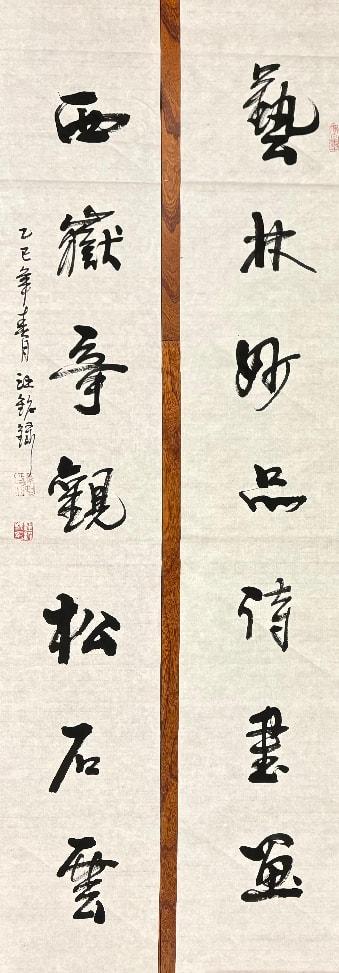 藝林妙品詩書畫
西嶽奇觀松石雲
乙巳年春月 汪銘